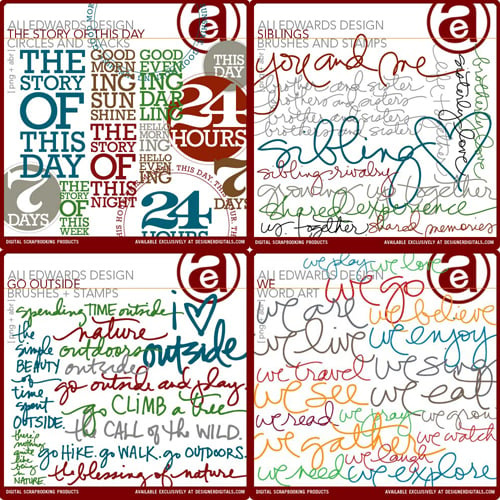 ALI EDWARDS DESIGN
THE STORY OF THIS DAY
CIRCLES AND STACKS
[ png + abr ]
THE
STORY
OF
THIS
DAY
GOOD
MORN
ING
SUN
SHINE
THE
STORY
OF
THIS
NIGHT
GOOD
EVEN
ING
DAR
LING
HELLO
MORN
ING
HELLO
EVEN
ING
THIS
DAY
24
HOURS
7
DAYS
THE
STORY
OF THIS
WEEK
24
HOURS
DIGITAL SCRAPBOOKING PRODUCTS
AVAILABLE EXCLUSIVELY AT DESIGNERDIGITALS.COM
ae
ALI EDWARDS DESIGN
SIBLINGS
BRUSHES AND STAMPS
[ png + abr ]
you and me
brother and sister
brothers and sisters
brothers and brothers
brothers and sisters
siblings
sibling rivalry
growing up together
shared experience
us together shared memories
brotherly love
sisterly love
DIGITAL SCRAPBOOKING PRODUCTS
AVAILABLE EXCLUSIVELY AT DESIGNERDIGITALS.COM
ae
ALI EDWARDS DESIGN
GO OUTSIDE
BRUSHES + STAMPS
[ png + abr ]
spending TIME outside
i
outside
nature
the
simple
BEAUTY
of
time
spent
OUTSIDE.
outdoors
outside
go outside and play.
go CLIMB a tree
the CALL of the WILD.
there's
nothing
quite
like
being
in
NATURE
go HIKE. go WALK. go OUTDOORS.
the blessing of nature
DIGITAL SCRAPBOOKING PRODUCTS
AVAILABLE EXCLUSIVELY AT DESIGNERDIGITALS.COM
ae
ALI EDWARDS DESIGN
WE
WORD ART
[ png + abr ]
we play we love
we go
we are we believe
we live we enjoy
we travel we sing
we see we eat
we read we pray we grow
we gather we watch
we laugh
we need we explore
DIGITAL SCRAPBOOKING PRODUCTS
AVAILABLE EXCLUSIVELY AT DESIGNERDIGITALS.COM